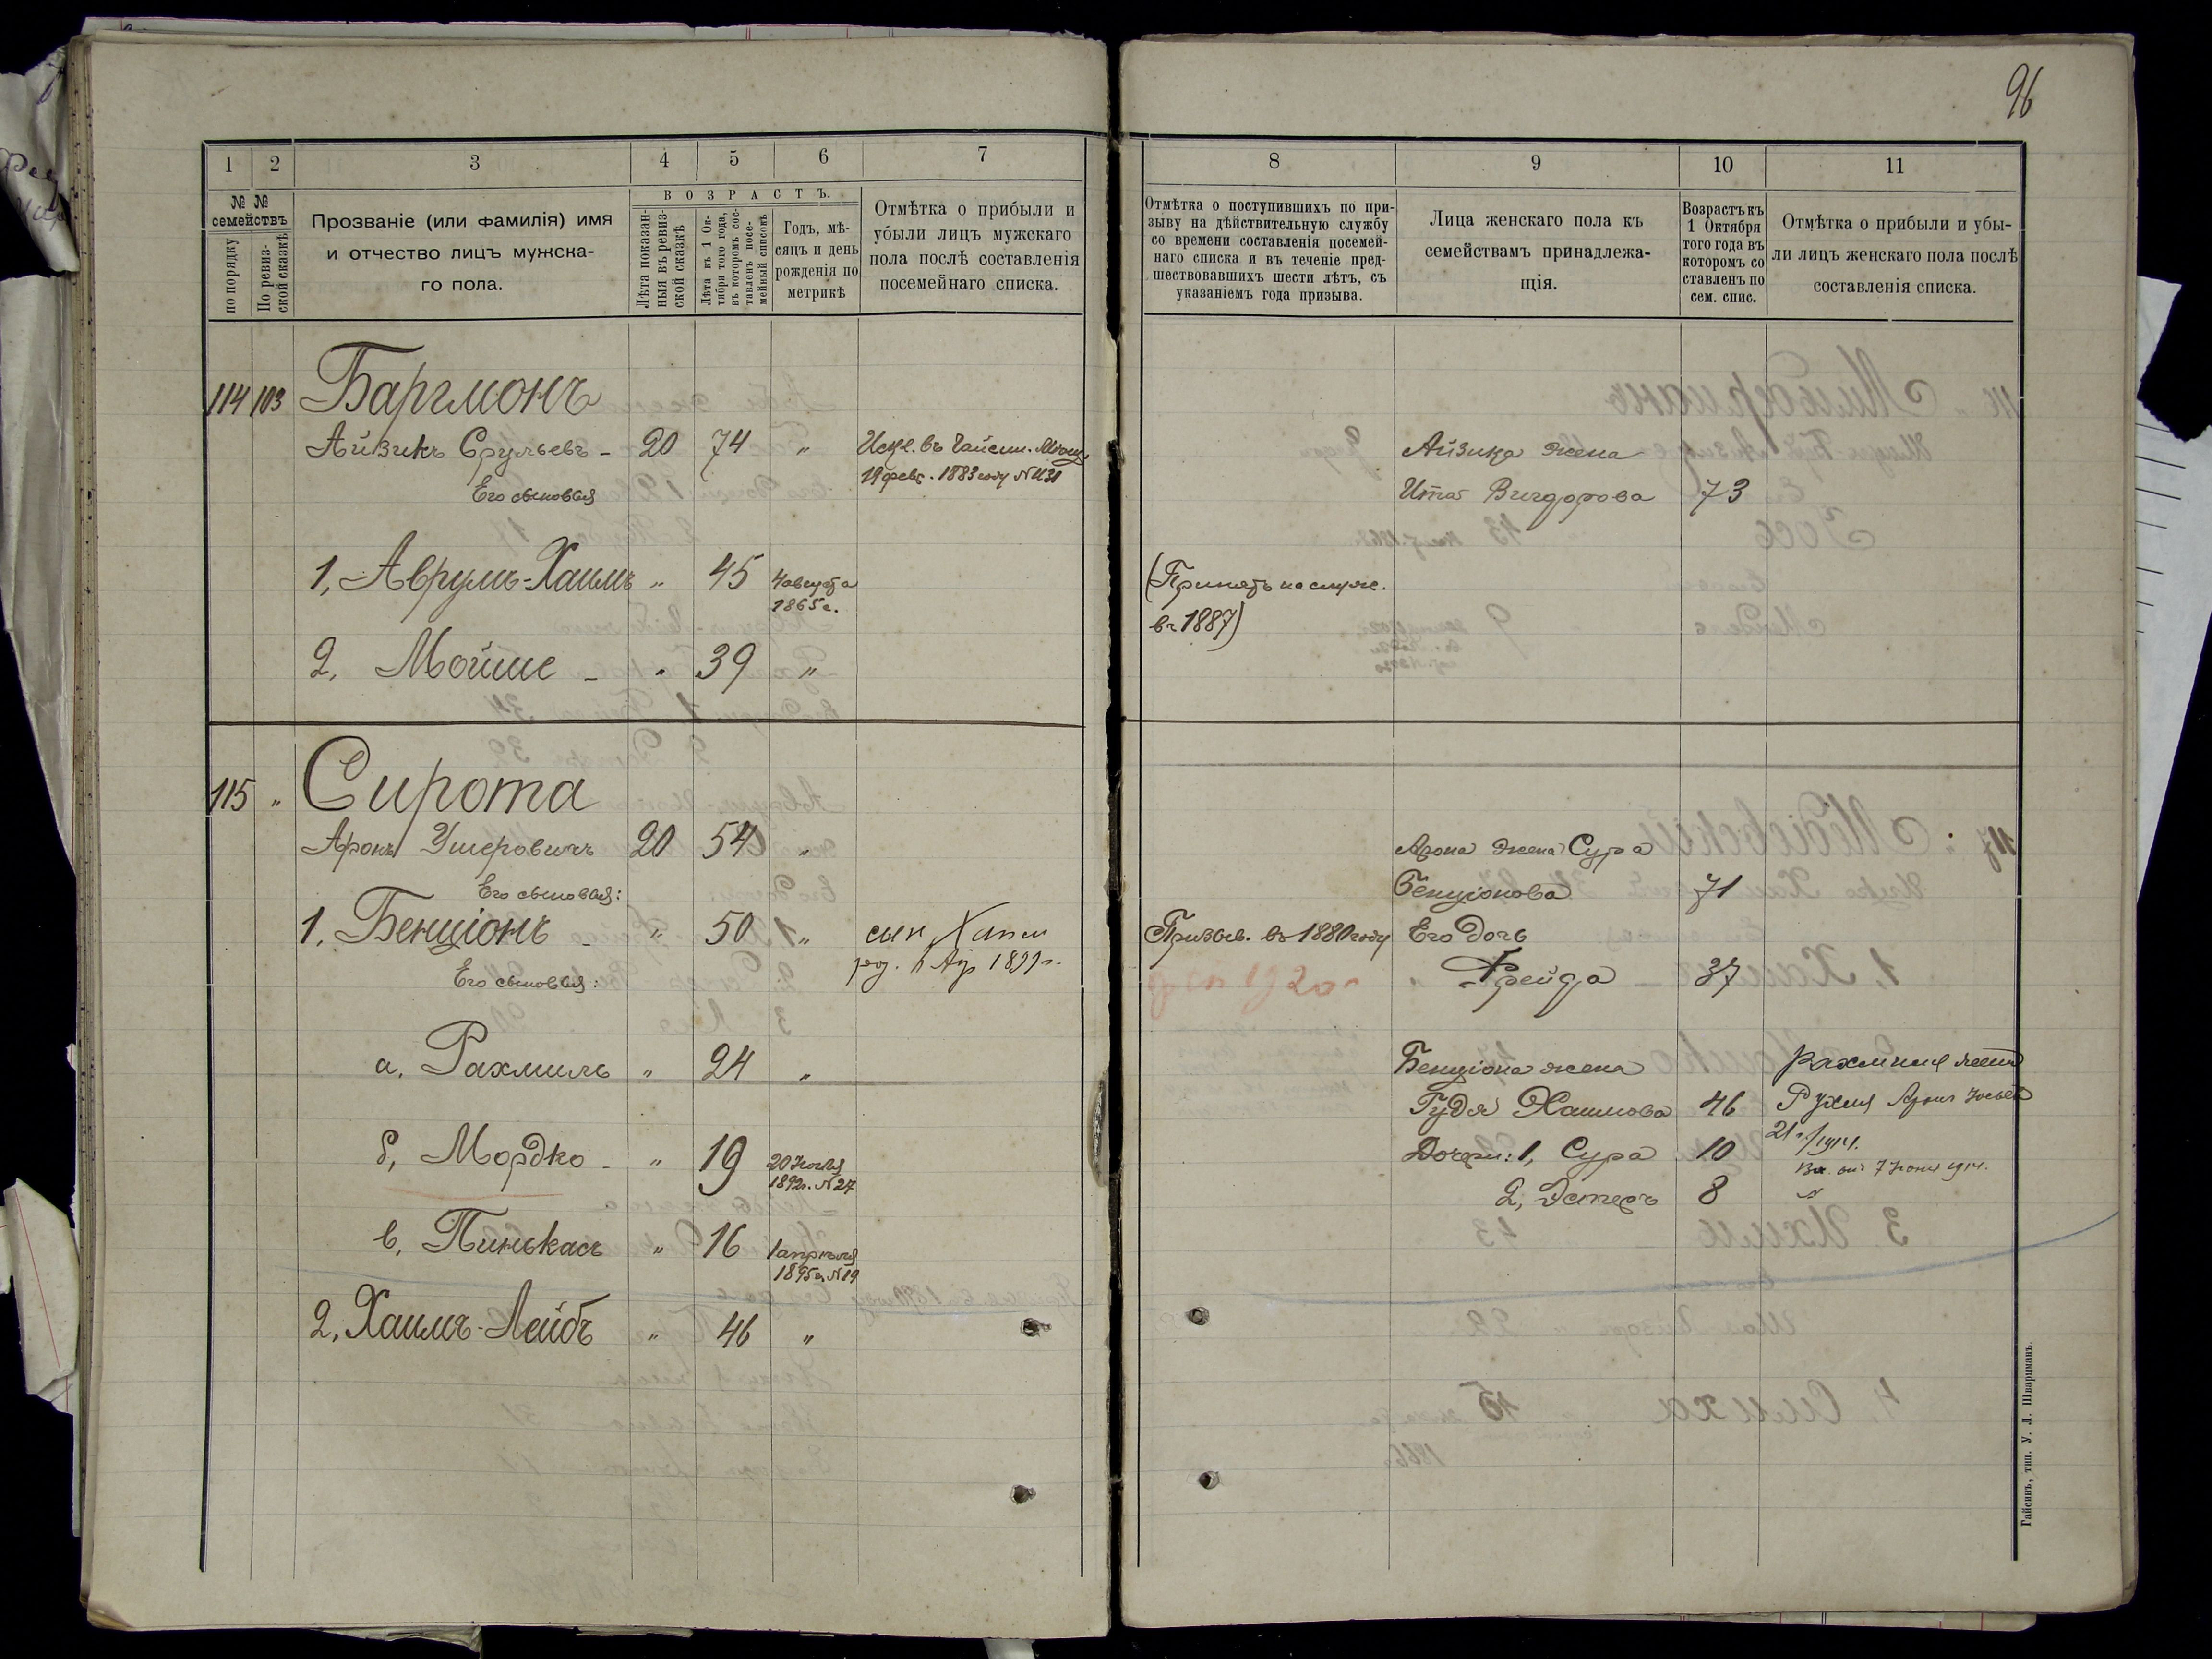 96
1
2
3
4
5
6
7
№ №
семействъ
по порядку
По ревиз-
ской сказкѣ
Прозваніе (или фамилія) имя
и отчество лицъ мужска-
го пола.
ВОЗРАСТЪ.
Лѣта показан-
ныя въ ревиз-
ской сказкѣ
Лѣта къ 1 Ок-
тября того года,
въ которомъ сос-
тавленъ посе-
мейный списокъ
Годъ, мѣ-
сяцъ и день
рожденія по
метрикѣ
Отмѣтка о прибыли и
убыли лицъ мужскаго
пола послѣ составленія
посемейнаго списка.
8
9
10
11
Отмѣтка о поступившихъ по при-
зыву на дѣйствительную службу
со времени составленія посемей-
наго списка и въ теченіе пред-
шествовавшихъ шести лѣтъ, съ
указаніемъ года призыва.
Лица женскаго пола къ
семействамъ принадлежа-
щія.
Возрастъ къ
1 Октября
того года въ
которомъ со
ставленъ по
сем. спис.
Отмѣтка о прибыли и убы-
ли лицъ женскаго пола послѣ
составленія списка.
114 103 Баргмонъ
Айзикъ Срульевъ - 20 74 "
19 февр. 1883 году
Его сыновья
1, Аврумъ-Хаимъ " 45 4 августа
1865 г.
2, Мойше - " 39 "
(Принятъ на служ.
въ 1887)
Айзика жена
Ита Вигдорова 73
115 " Сирота
Аронъ Ушеровичъ 20 54 "
Его сыновья:
1, Бенціонъ - " 50 " сын
1899 г.
Его сыновья:
а, Рахмиль " 24 "
б, Мордко - " 19 20 Ноября
1892 г. N 27
в, Пинькасъ " 16 1 апрѣля
1895 г. N 19
2, Хаимъ-Лейбъ " 46 "
Призыв. въ 1880 году
1920 г
Арона жена Сура
Бенціонова 71
Его дочь
Фрейда 37
Бенціона жена
Гудя Хаимова 46
Дочери: 1, Сура 10
2, Эстеръ 8
Рахмиля жена
Рухля
7 Іюня 1914.
"
Гайсинъ, тип. У. Л. Шварцманъ.